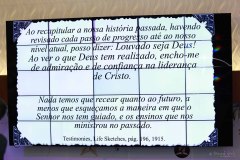 Ao recapitular a nossa história passada, havendo
revisado cada passo de progresso até ao nosso
nível atual, posso dizer: Louvado seja Deus!
Ao ver o que Deus tem realizado, encho-me
de admiração e de confiança na liderança
de Cristo.
Nada temos que recear quanto ao futuro, a
menos que esqueçamos a maneira em que o
Senhor nos tem guiado, e os ensinos que nos
ministrou no passado.
Testimonies, Life Sketches, pág. 196, 1915.